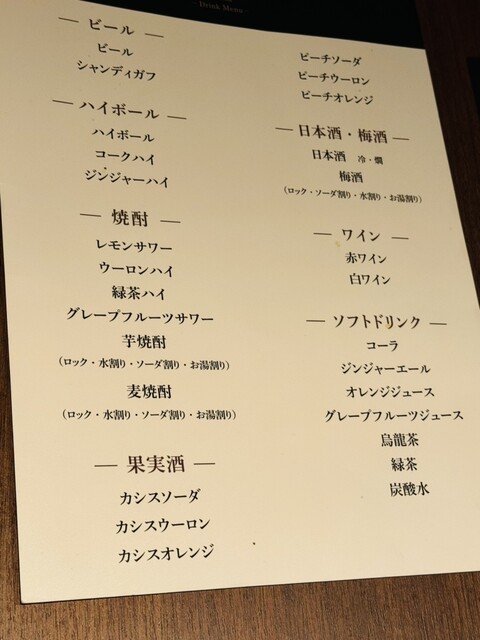 - Drink Menu -
― ビール ―
ビール
シャンディガフ
― ハイボール ―
ハイボール
コークハイ
ジンジャーハイ
― 焼酎 ―
レモンサワー
ウーロンハイ
緑茶ハイ
グレープフルーツサワー
芋焼酎
(ロック・水割り・ソーダ割り・お湯割り)
麦焼酎
(ロック・水割り・ソーダ割り・お湯割り)
― 果実酒 ―
カシスソーダ
カシスウーロン
カシスオレンジ
ピーチソーダ
ピーチウーロン
ピーチオレンジ
― 日本酒・梅酒 ―
日本酒 冷・燗
梅酒
(ロック・ソーダ割り・水割り・お湯割り)
― ワイン ―
赤ワイン
白ワイン
― ソフトドリンク ―
コーラ
ジンジャーエール
オレンジジュース
グレープフルーツジュース
烏龍茶
緑茶
炭酸水